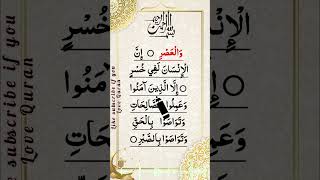 بسم الله الرحمن الرحيم
وَالْعَصْرِ ۝ إِنَّ
الْإِنْسَانَ لَفِي خُسْرٍ
۝ إِلَّا الَّذِينَ آمَنُوا
وَعَمِلُوا الصَّالِحَاتِ
وَتَوَاصَوْا بِالْحَقِّ
وَتَوَاصَوْا بِالصَّبْرِ ۝
Like subscribe if you
Love Quran